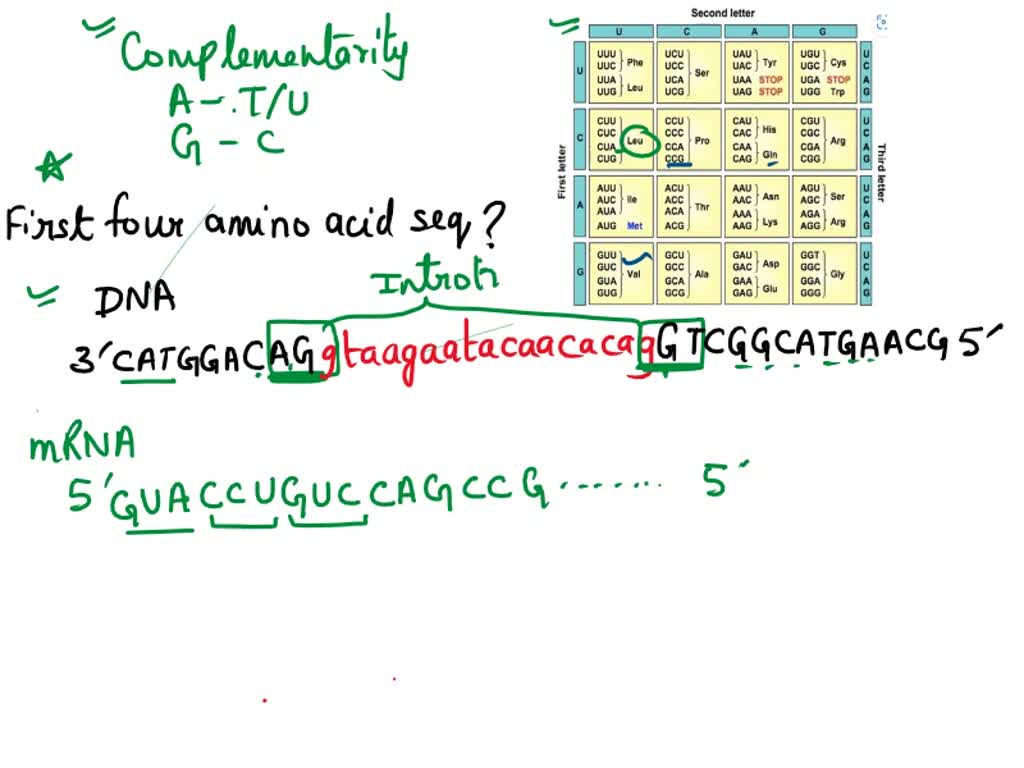 Complementarity
A - T/U
G - C
First four amino acid seq?
Intron
DNA
3' CATGGACAGgtaagaatacaacacagGTCGGCATGAACG 5'
mRNA
5' GUACCUGUCCAGCCG ....... 5'
Second letter
U C A G
First letter
Third letter
U
UUU UUC Phe
UUA UUG Leu
UCU UCC UCA UCG Ser
UAU UAC Tyr
UAA STOP
UAG STOP
UGU UGC Cys
UGA STOP
UGG Trp
U C A G
C
CUU CUC CUA CUG Leu
CCU CCC CCA CCG Pro
CAU CAC His
CAA CAG Gln
CGU CGC CGA CGG Arg
U C A G
A
AUU AUC AUA Ile
AUG Met
ACU ACC ACA ACG Thr
AAU AAC Asn
AAA AAG Lys
AGU AGC Ser
AGA AGG Arg
U C A G
G
GUU GUC GUA GUG Val
GCU GCC GCA GCG Ala
GAU GAC Asp
GAA GAG Glu
GGT GGC GGA GGG Gly
U C A G